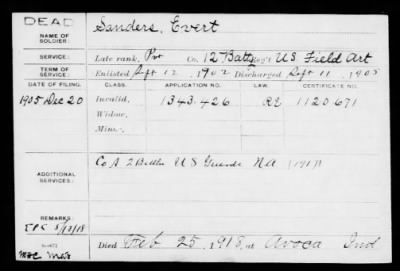 DEAD
NAME OF SOLDIER:
Sanders, Evert
SERVICE:
Late rank, Pvt Co. 12 Batty Reg't US Field Art
TERM OF SERVICE:
Enlisted Sept 12, 1902 Discharged Sept 11, 1905
DATE OF FILING. CLASS. APPLICATION NO. LAW. CERTIFICATE NO.
1905 Dec 20 Invalid, 1343.426 1120671
Widow,
Minor,
ADDITIONAL SERVICES:
Co A 2 US NA (1917)
REMARKS:
Died Feb 25, 1918, at Avoca Ind